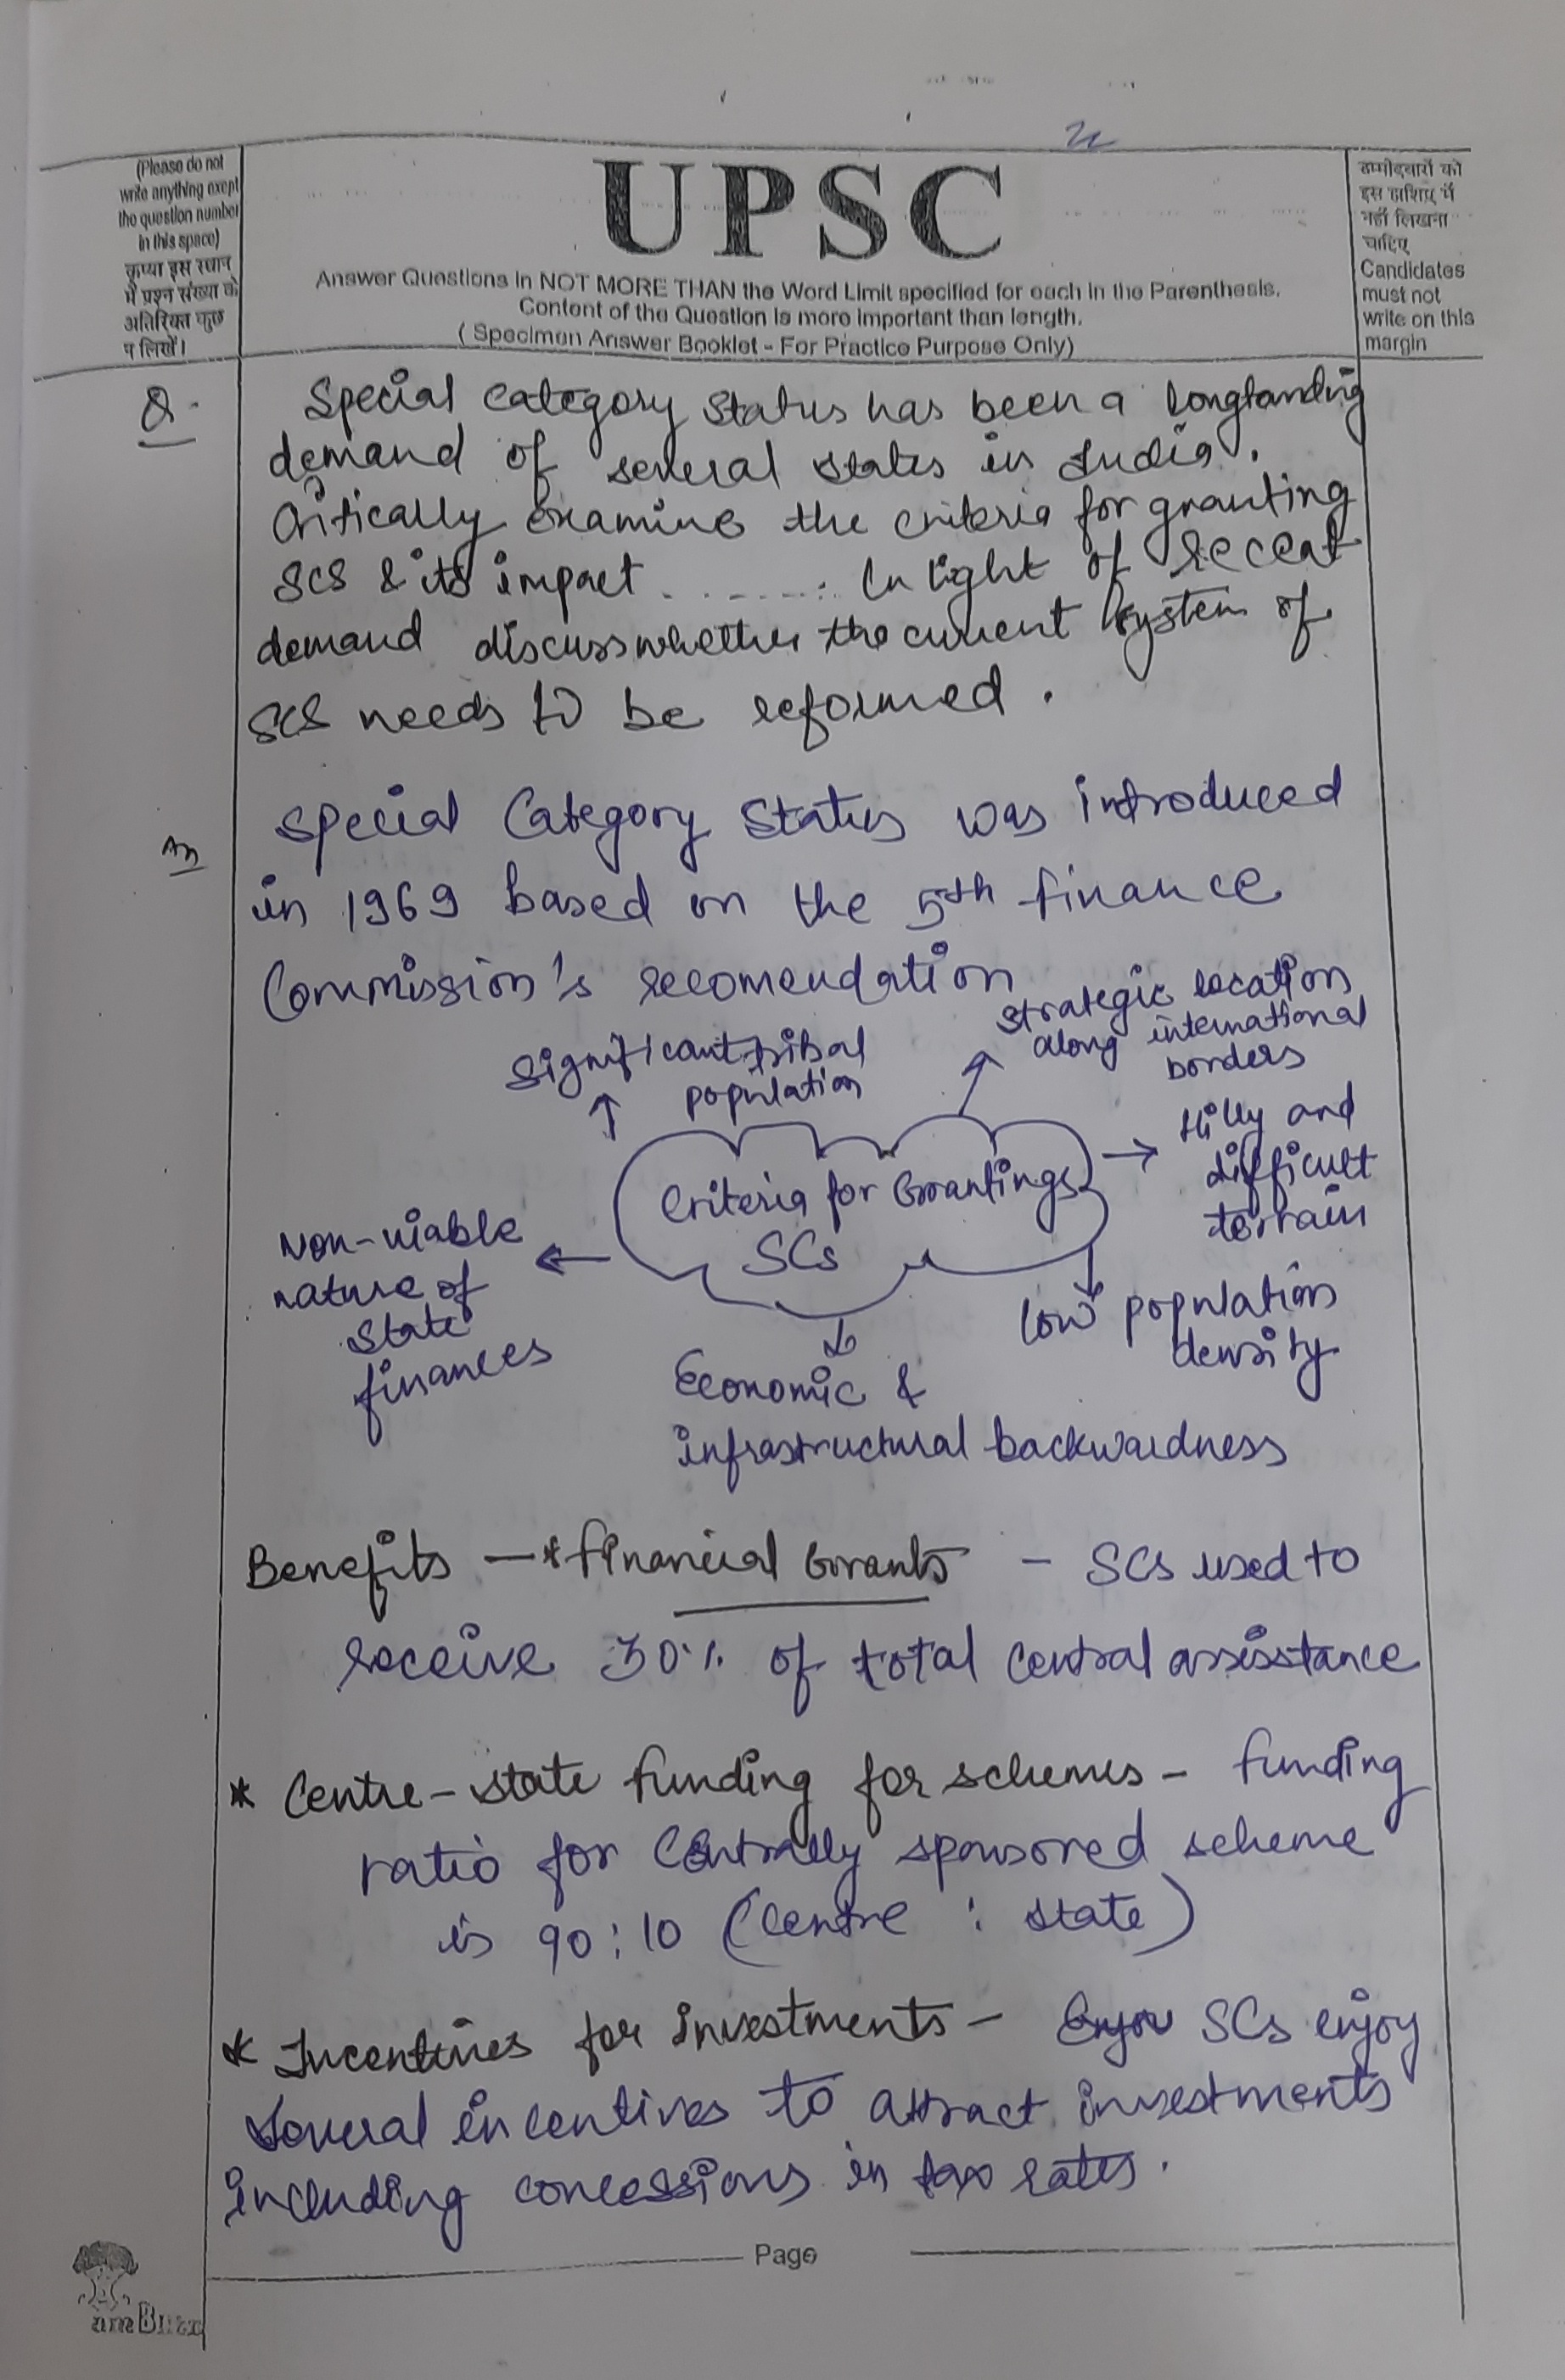 (Please do not
write anything exept
the question number
in this space)
कृप्या इस स्थान
में प्रश्न संख्या के
अतिरिक्त कुछ
न लिखें।
UPSC
Answer Questions in NOT MORE THAN the Word Limit specified for each in the Parenthesis.
Content of the Question is more important than length.
( Specimen Answer Booklet - For Practice Purpose Only)
उम्मीदवारों को
इस हाशिए में
नहीं लिखना
चाहिए
Candidates
must not
write on this
margin
Q.
Special Category Status has been a longtanding
demand of several states in India.
Critically examine the criteria for granting
SCS & its impact ........ In light of recent
demand discuss whether the current system of
SCS needs to be reformed.
An
Special Category Status was introduced
in 1969 based on the 5th finance
Commission's recomendation
Significant tribal
population
Strategic location
along international
borders
Hilly and
difficult
terrain
Criteria for Grantings
SCs
Non-viable
nature of
state
finances
low population
density
Economic &
infrastructural backwardness
Benefits - * Financial Grants - SCs used to
receive 30% of total central assisstance
* Centre-state funding for schemes - funding
ratio for Centrally sponsored scheme
is 90:10 (Centre : state)
* Incentives for investments - Enjou SCs enjoy
several incentives to attract investments
including concessions in tax rates.
Page